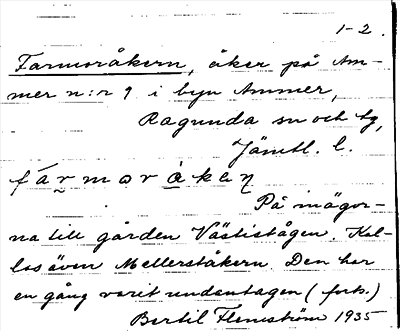 1-2.
Farmoråkern, åker på Am-
mer n:r 9 i byn Ammer,
Ragunda sn och tg,
Jämtl. l.
farmoråkeɳ
På inägor-
na till gården Västistågen. Kal-
las även Mellerståkern. Den har
en gång varit undantagen (forts.)
Bertil Flemström 1935